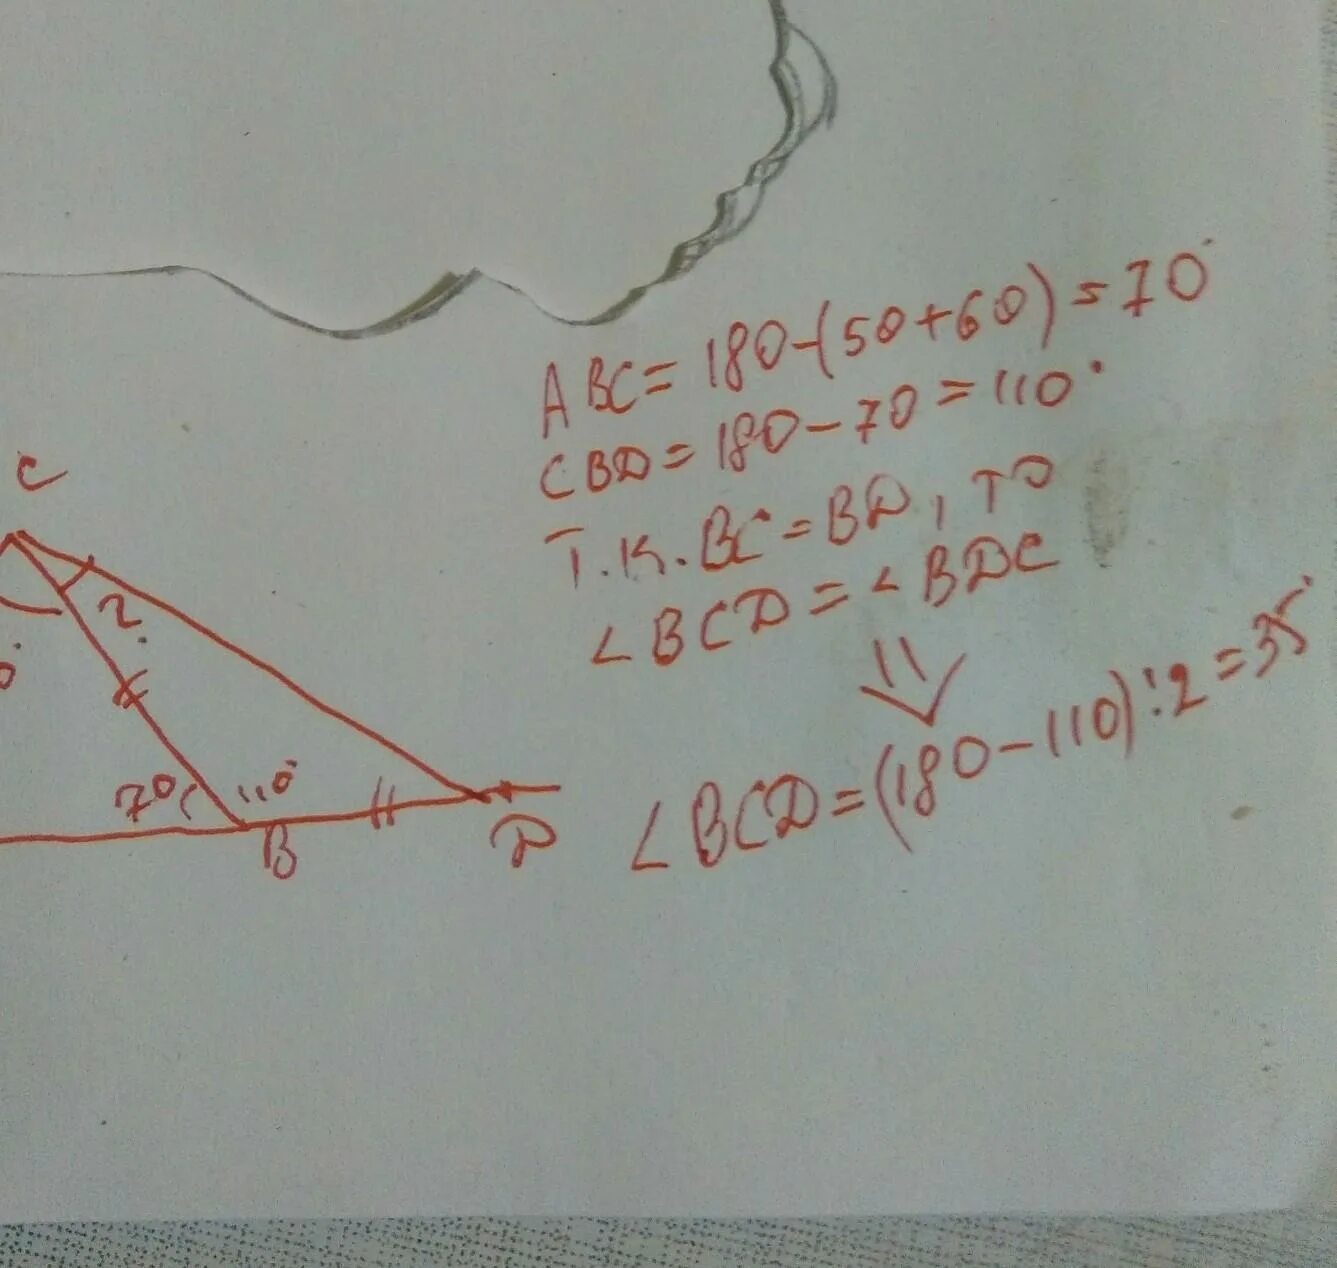 ABC = 180-(50+60) = 70°
CBD = 180-70 = 110°
Т.К. BC = BD, ТО
∠BCD = ∠BDC
⇓
∠BCD = (180-110):2 = 35°
C
?
70°
110°
B
D